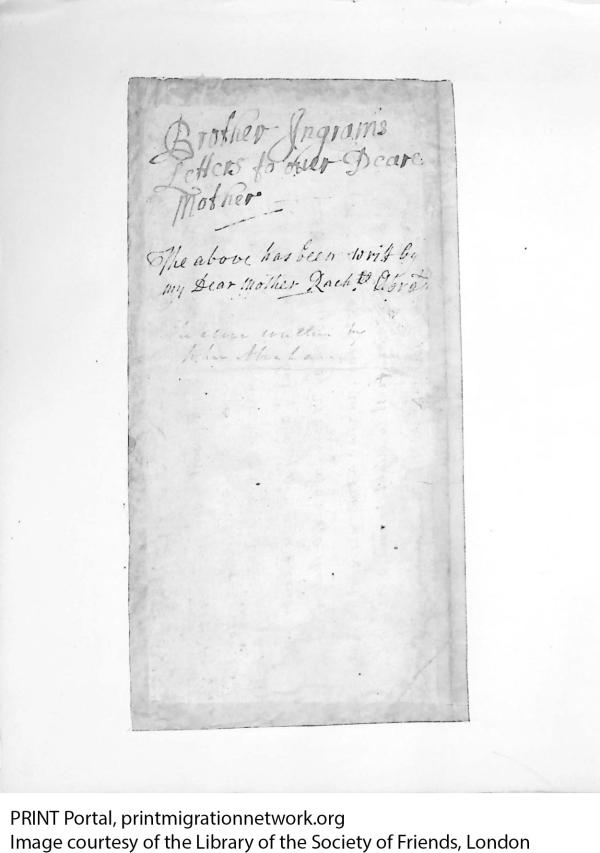 Brother Ingram's
Letters to ouer Deare
Mother
The above has been writ by
my Dear Mother Rach:ll Abra:m
written by
John Abraham
PRINT Portal, printmigrationnetwork.org
Image courtesy of the Library of the Society of Friends, London